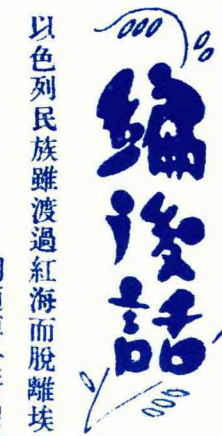 編後話
以色列民族雖渡過紅海而脫離埃